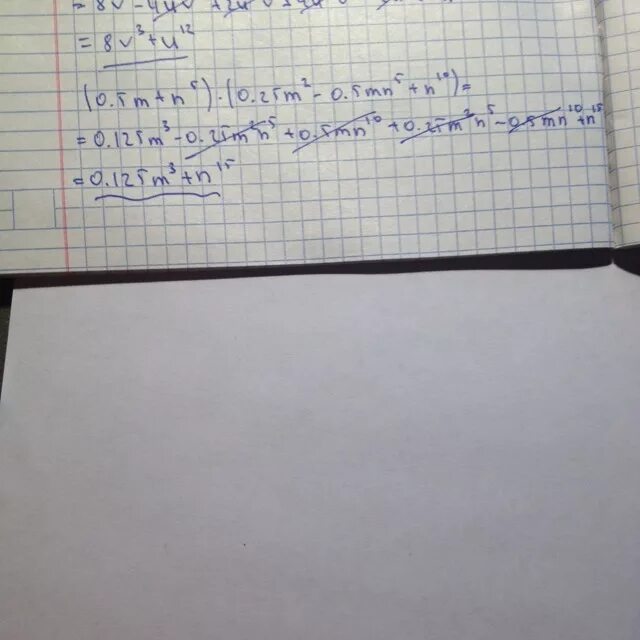 = 8v
= 8v³+u¹²
(0.5m+n⁵)·(0.25m²-0.5mn⁵+n¹⁰)=
= 0.125m³-0.25m²n⁵+0.5mn¹⁰+0.25m²n⁵-0.5mn¹⁰+n¹⁵
= 0.125m³+n¹⁵